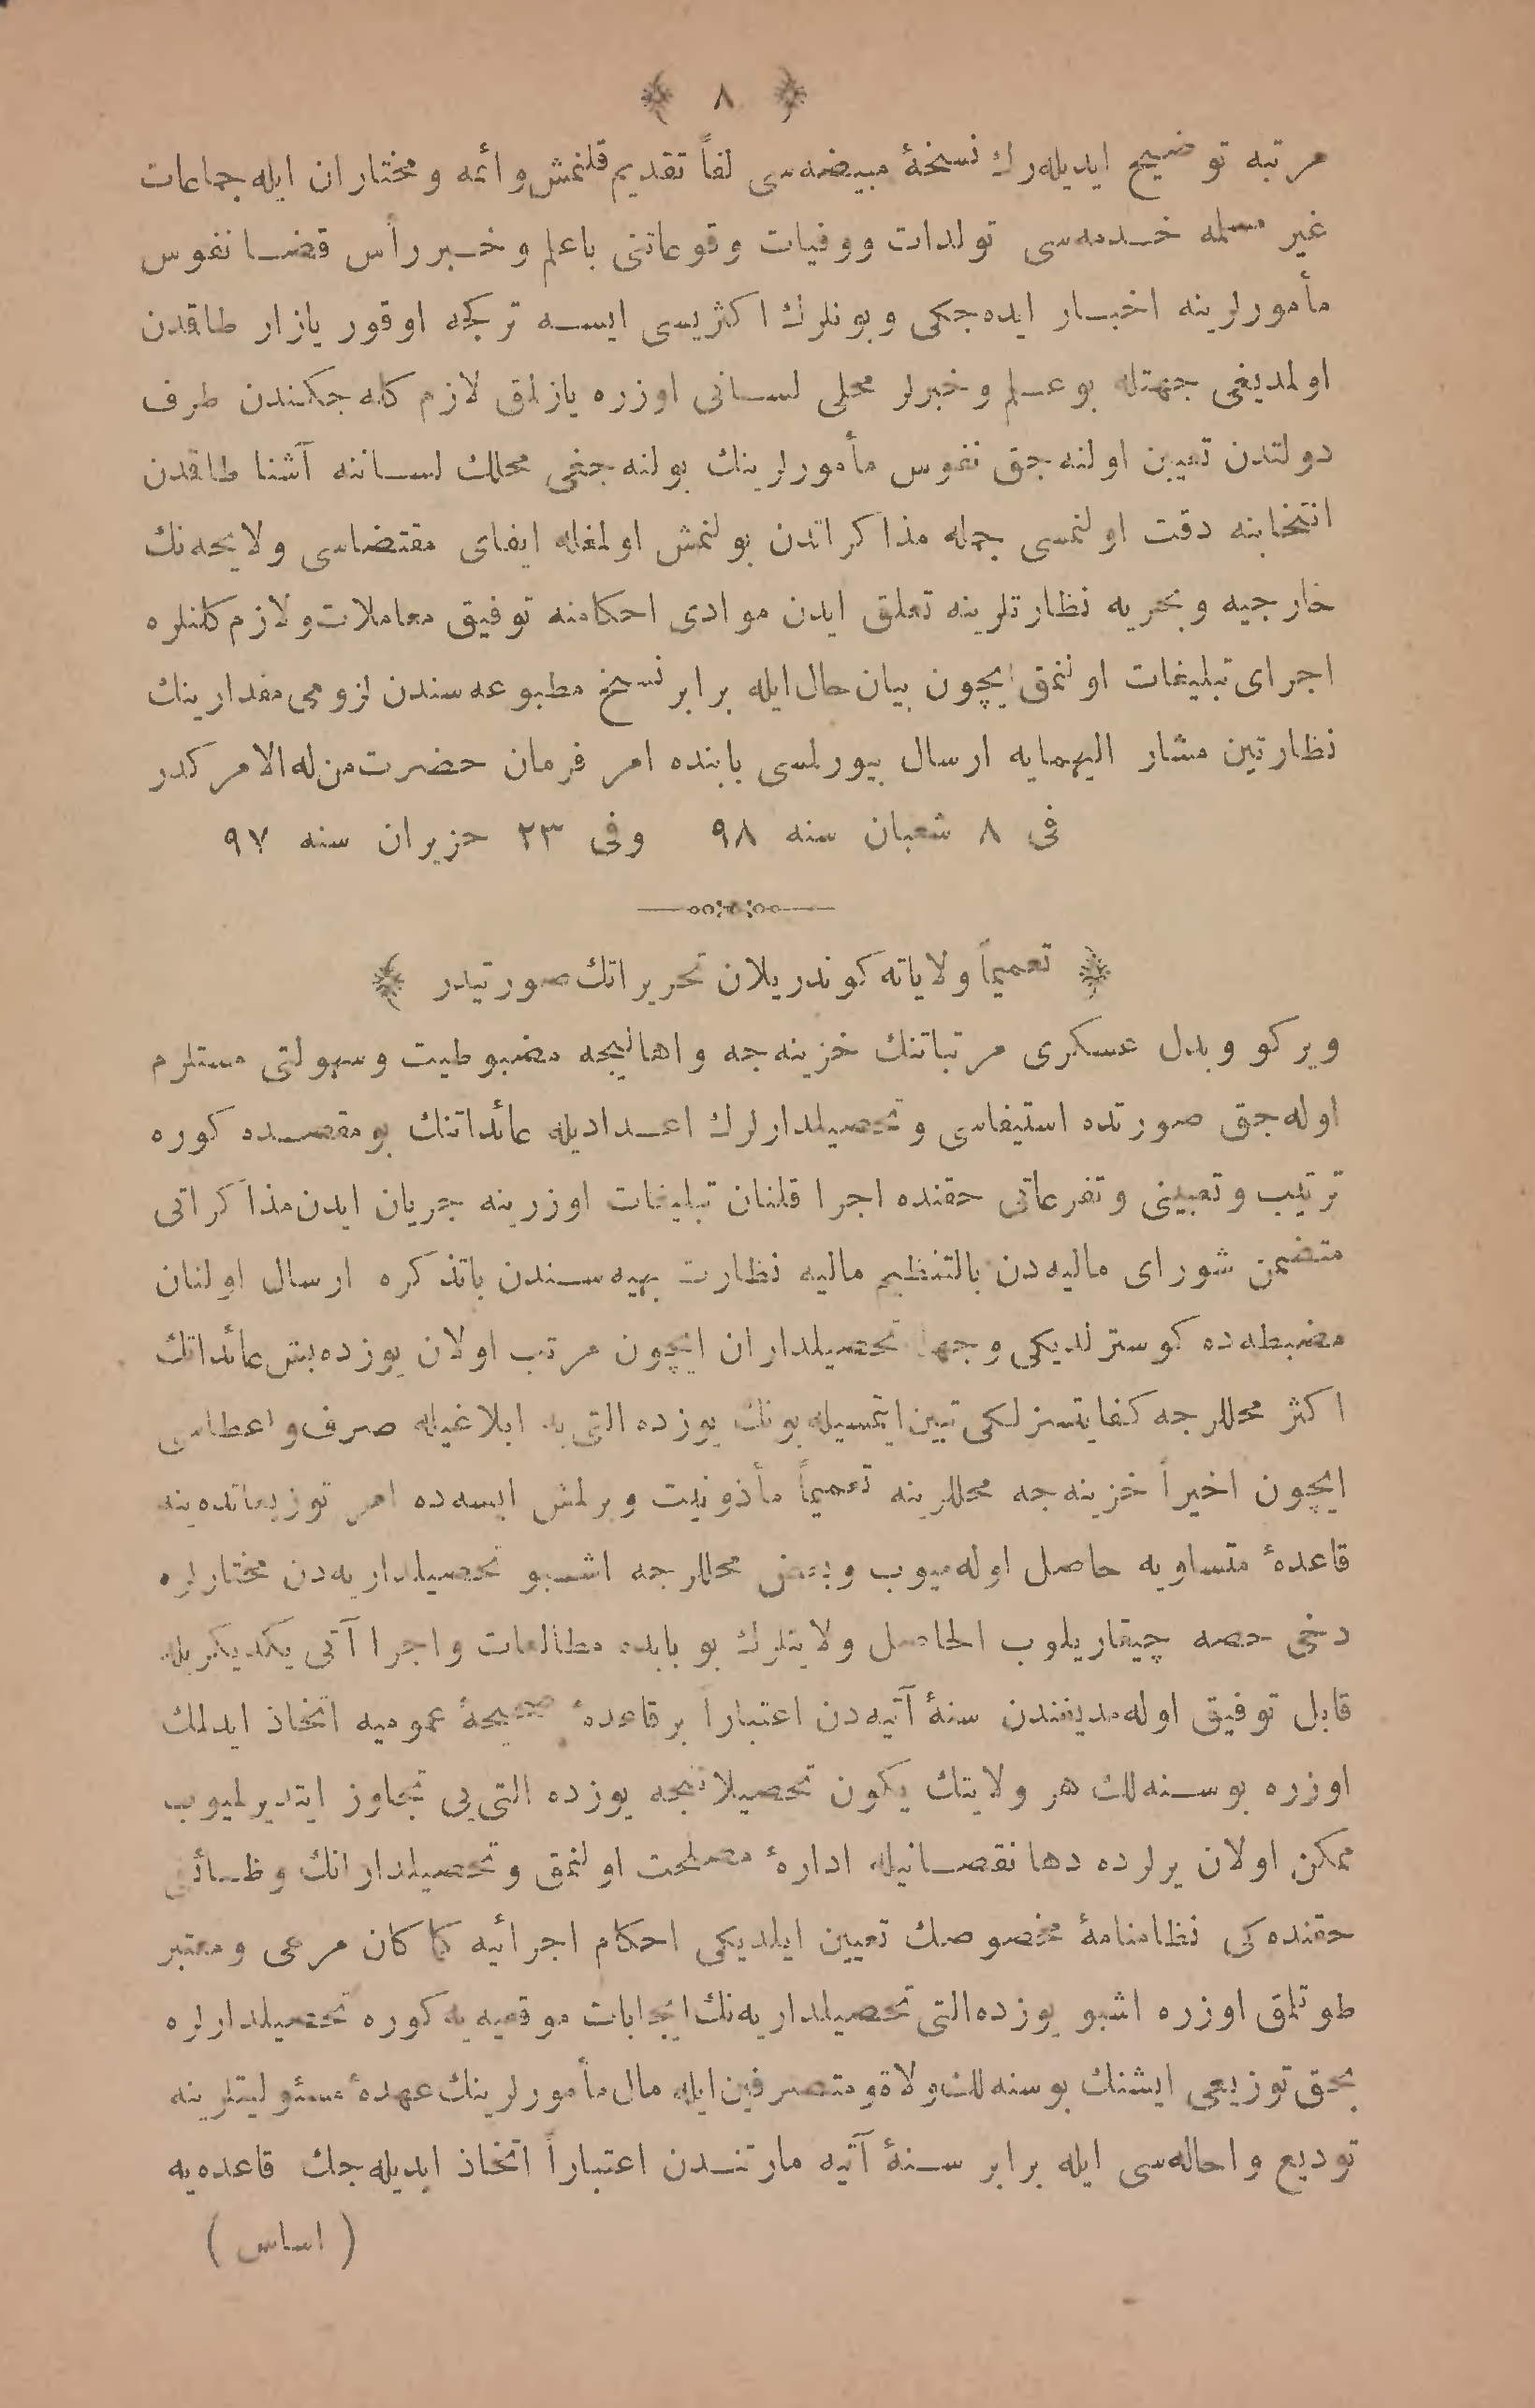 ٨
مرتبه توضیح ایدیله‌رك نسخهٔ مبیضه‌سی لفاً تقدیم قلنمش وائمه ومختاران ایله جماعات
غیر مسلمه خدمه‌سی تولدات ووفیات وقوعاتنی باعلم وخبر رأس قضا نفوس
مأمورلرینه اخبار ایده‌جكی وبونلرك اكثریسی ایسه تركجه اوقور یازار طاقدن
اولمدیغی جهتله بو علم وخبرلر محلی لسانی اوزره یازلمق لازم كله‌جكندن طرف
دولتدن تعیین اولنه‌جق نفوس مأمورلرینك بولنه‌جغی محللك لساننه آشنا طاقدن
انتخابنه دقت اولنمسی جمله مذاكراتدن بولنمش اولمغله ایفای مقتضاسی ولایحه‌نك
خارجیه وبحریه نظارتلرینه تعلق ایدن موادی احكامنه توفیق معاملات ولازم كلنلره
اجرای تبلیغات اولنمق ایچون بیان حال ایله برابر نسخ مطبوعه‌سندن لزومی مقدارینك
نظارتین مشار الیهمایه ارسال بیورلمسی بابنده امر فرمان حضرت من له الامركدر
فی ٨ شعبان سنه ٩٨ وفی ٢٣ حزیران سنه ٩٧
تعمیماً ولایاته كوندریلان تحریراتك صورتیدر
ویركو وبدل عسكری مرتباتنك خزینه‌جه واهالیجه مضبوطیت وسهولتی مستلزم
اوله‌جق صورتده استیفاسی وتحصیلدارلرك اعدادیله عائداتنك بومقصده كوره
ترتیب وتعیینی وتفرعاتی حقنده اجرا قلنان تبلیغات اوزرینه جریان ایدن مذاكراتی
متضمن شورای مالیه‌دن بالتنظیم مالیه نظارت بهیه‌سندن باتذكره ارسال اولنان
مضبطه‌ده كوسترلدیكی وجهله تحصیلداران ایچون مرتب اولان یوزده‌بش عائداتك
اكثر محللرجه كفایتسزلكی تبین ایتمسیله بونك یوزده التی‌یه ابلاغیله صرف واعطاسی
ایچون اخیراً خزینه‌جه محللرینه تعمیماً مأذونیت ویرلمش ایسه‌ده امر توزیعاتده‌ینه
قاعدهٔ متساویه حاصل اوله‌میوب وبعض محللرجه اشبو تحصیلداریه‌دن مختارلره
دخی حصه چیقاریلوب الحاصل ولایتلرك بو بابده مطالعات واجراآتی یكدیكریله
قابل توفیق اوله‌مدیغندن سنهٔ آتیه‌دن اعتباراً برقاعدهٔ صحیحهٔ عمومیه اتخاذ ایدلمك
اوزره بوسنه‌لك هر ولایتك یكون تحصیلاتنجه یوزده التی‌یی تجاوز ایتدیرلمیوب
ممكن اولان یرلرده دها نقصانیله ادارهٔ مصلحت اولنمق وتحصیلدارانك وظائفی
حقنده‌كی نظامنامهٔ مخصوصك تعیین ایلدیكی احكام اجرائیه كماكان مرعی ومعتبر
طوتلمق اوزره اشبو یوزده‌التی تحصیلداریه‌نك ایجابات موقعیه‌یه كوره تحصیلدارلره
بحق توزیعی ایشنك بوسنه‌لك ولاة ومتصرفین ایله مال مأمورلرینك عهدهٔ مسئولیتلرینه
تودیع واحاله‌سی ایله برابر سنهٔ آتیه مارتندن اعتباراً اتخاذ ایدیله‌جك قاعده‌یه
( اساس )